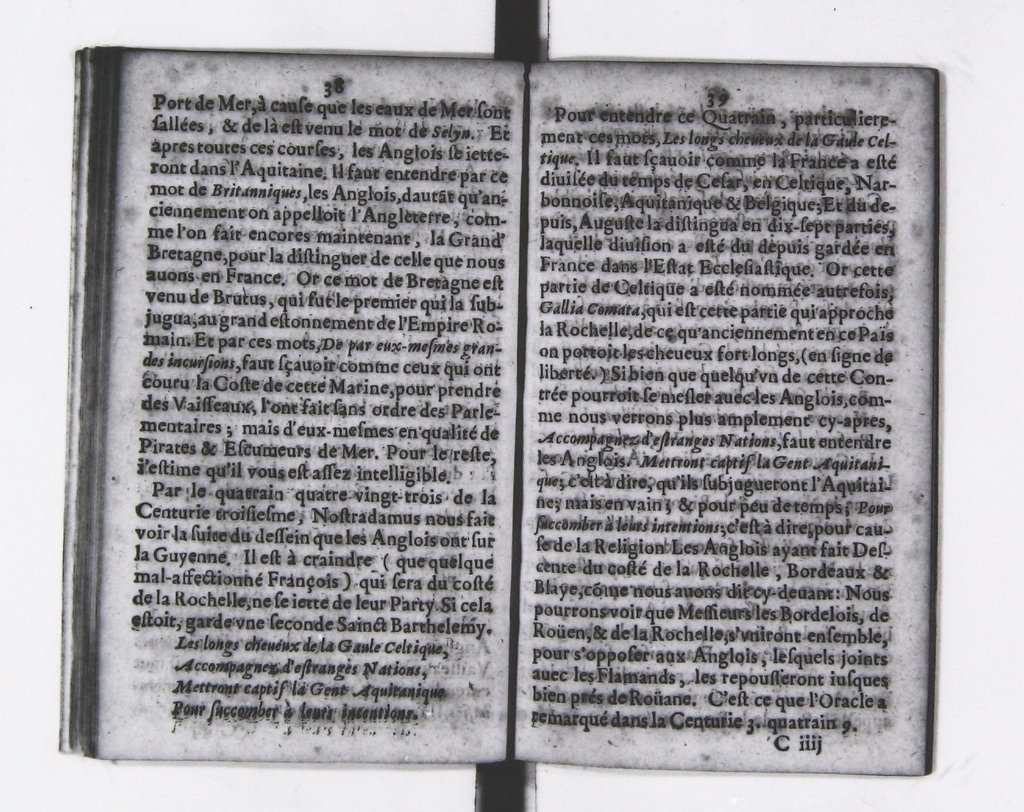 38
Port de Mer, à cauſe que les eaux de Mer ſont
ſallées, & de là eſt venu le mot de Selyn. Et
apres toutes ces courſes, les Anglois ſe iette-
ront dans l'Aquitaine. Il faut entendre par ce
mot de Britanniques, les Anglois, dautãt qu'an-
ciennement on appelloit l'Angleterre, com-
me l'on fait encores maintenant, la Grand'
Bretagne, pour la diſtinguer de celle que nous
auons en France. Or ce mot de Bretagne eſt
venu de Brutus, qui fut le premier qui la ſub-
jugua, au grand eſtonnement de l'Empire Ro-
main. Et par ces mots, De par eux-meſmes gran-
des incurſions, faut ſçauoir comme ceux qui ont
couru la Coſte de cette Marine, pour prendre
des Vaiſſeaux, l'ont fait ſans ordre des Parle-
mentaires; mais d'eux-meſmes en qualité de
Pirates & Eſcumeurs de Mer. Pour le reſte,
i'eſtime qu'il vous eſt aſſez intelligible.
Par le quatrain quatre vingt-trois de la
Centurie troiſieſme, Noſtradamus nous fait
voir la ſuite du deſſein que les Anglois ont ſur
la Guyenne. Il eſt à craindre (que quelque
mal-affectionné François) qui ſera du coſté
de la Rochelle, ne ſe iette de leur Party. Si cela
eſtoit, garde vne ſeconde Sainct Barthelemy.
Les longs cheueux de la Gaule Celtique,
Accompagnez d'eſtranges Nations,
Mettront captif la Gent Aquitanique
Pour ſuccomber à leurs intentions.
39
Pour entendre ce Quatrain, particuliere-
ment ces mots, Les longs cheueux de la Gaule Cel-
tique. Il faut ſçauoir comme la France a eſté
diuiſée du temps de Ceſar, en Celtique, Nar-
bonnoiſe, Aquitanique & Belgique; Et du de-
puis, Auguſte la diſtingua en dix-ſept parties,
laquelle diuiſion a eſté du depuis gardée en
France dans l'Eſtat Eccleſiaſtique. Or cette
partie de Celtique a eſté nommée autrefois,
Gallia Comata, qui eſt cette partie qui approche
la Rochelle, de ce qu'anciennement en ce Païs
on portoit les cheueux fort longs, (en ſigne de
liberté.) Si bien que quelqu'vn de cette Con-
trée pourroit ſe meſler auec les Anglois, com-
me nous verrons plus amplement cy-apres,
Accompagnez d'eſtranges Nations, faut entendre
les Anglois. Mettront captif la Gent Aquitani-
que; c'eſt à dire, qu'ils ſubjugueront l'Aquitai-
ne; mais en vain, & pour peu de temps; Pour
ſuccomber à leurs intentions; c'eſt à dire, pour cau-
ſe de la Religion. Les Anglois ayant fait Deſ-
cente du coſté de la Rochelle, Bordeaux &
Blaye, cõme nous auons dit cy-deuant: Nous
pourrons voir que Meſſieurs les Bordelois, de
Roüen, & de la Rochelle, s'vniront enſemble,
pour s'oppoſer aux Anglois, leſquels joints
auec les Flamands, les repouſſeront iuſques
bien prés de Roüane. C'eſt ce que l'Oracle a
remarqué dans la Centurie 3. quatrain 9.
C iiij